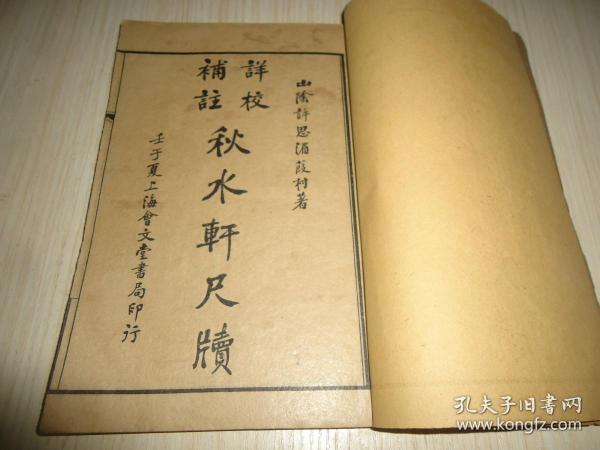 山陰許思湄葭村著
詳校
補註
秋水軒尺牘
壬子夏上海會文堂書局印行
孔夫子旧书网
www.kongfz.com